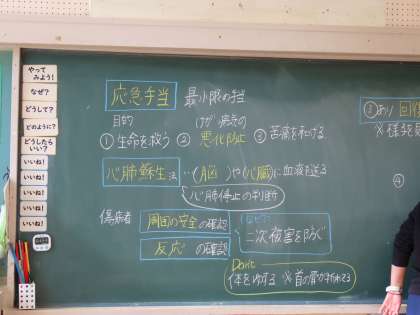 やって
みよう!
なぜ?
どうして?
どのように?
どうしたら
いい?
いいね!
いいね!
いいね!
いいね!
いいね!
応急手当 最小限の手当
目的 けが・病気の
①生命を救う ②悪化防止 ③苦痛を和げる
心肺蘇生法…(脳)や(心臓)に血液を送る
心肺停止の判断
傷病者 周囲の安全の確認
二次被害を防ぐ
反応の確認
Don't
体をゆする ※首の骨が折れてる
③あり 回復
※様子
④